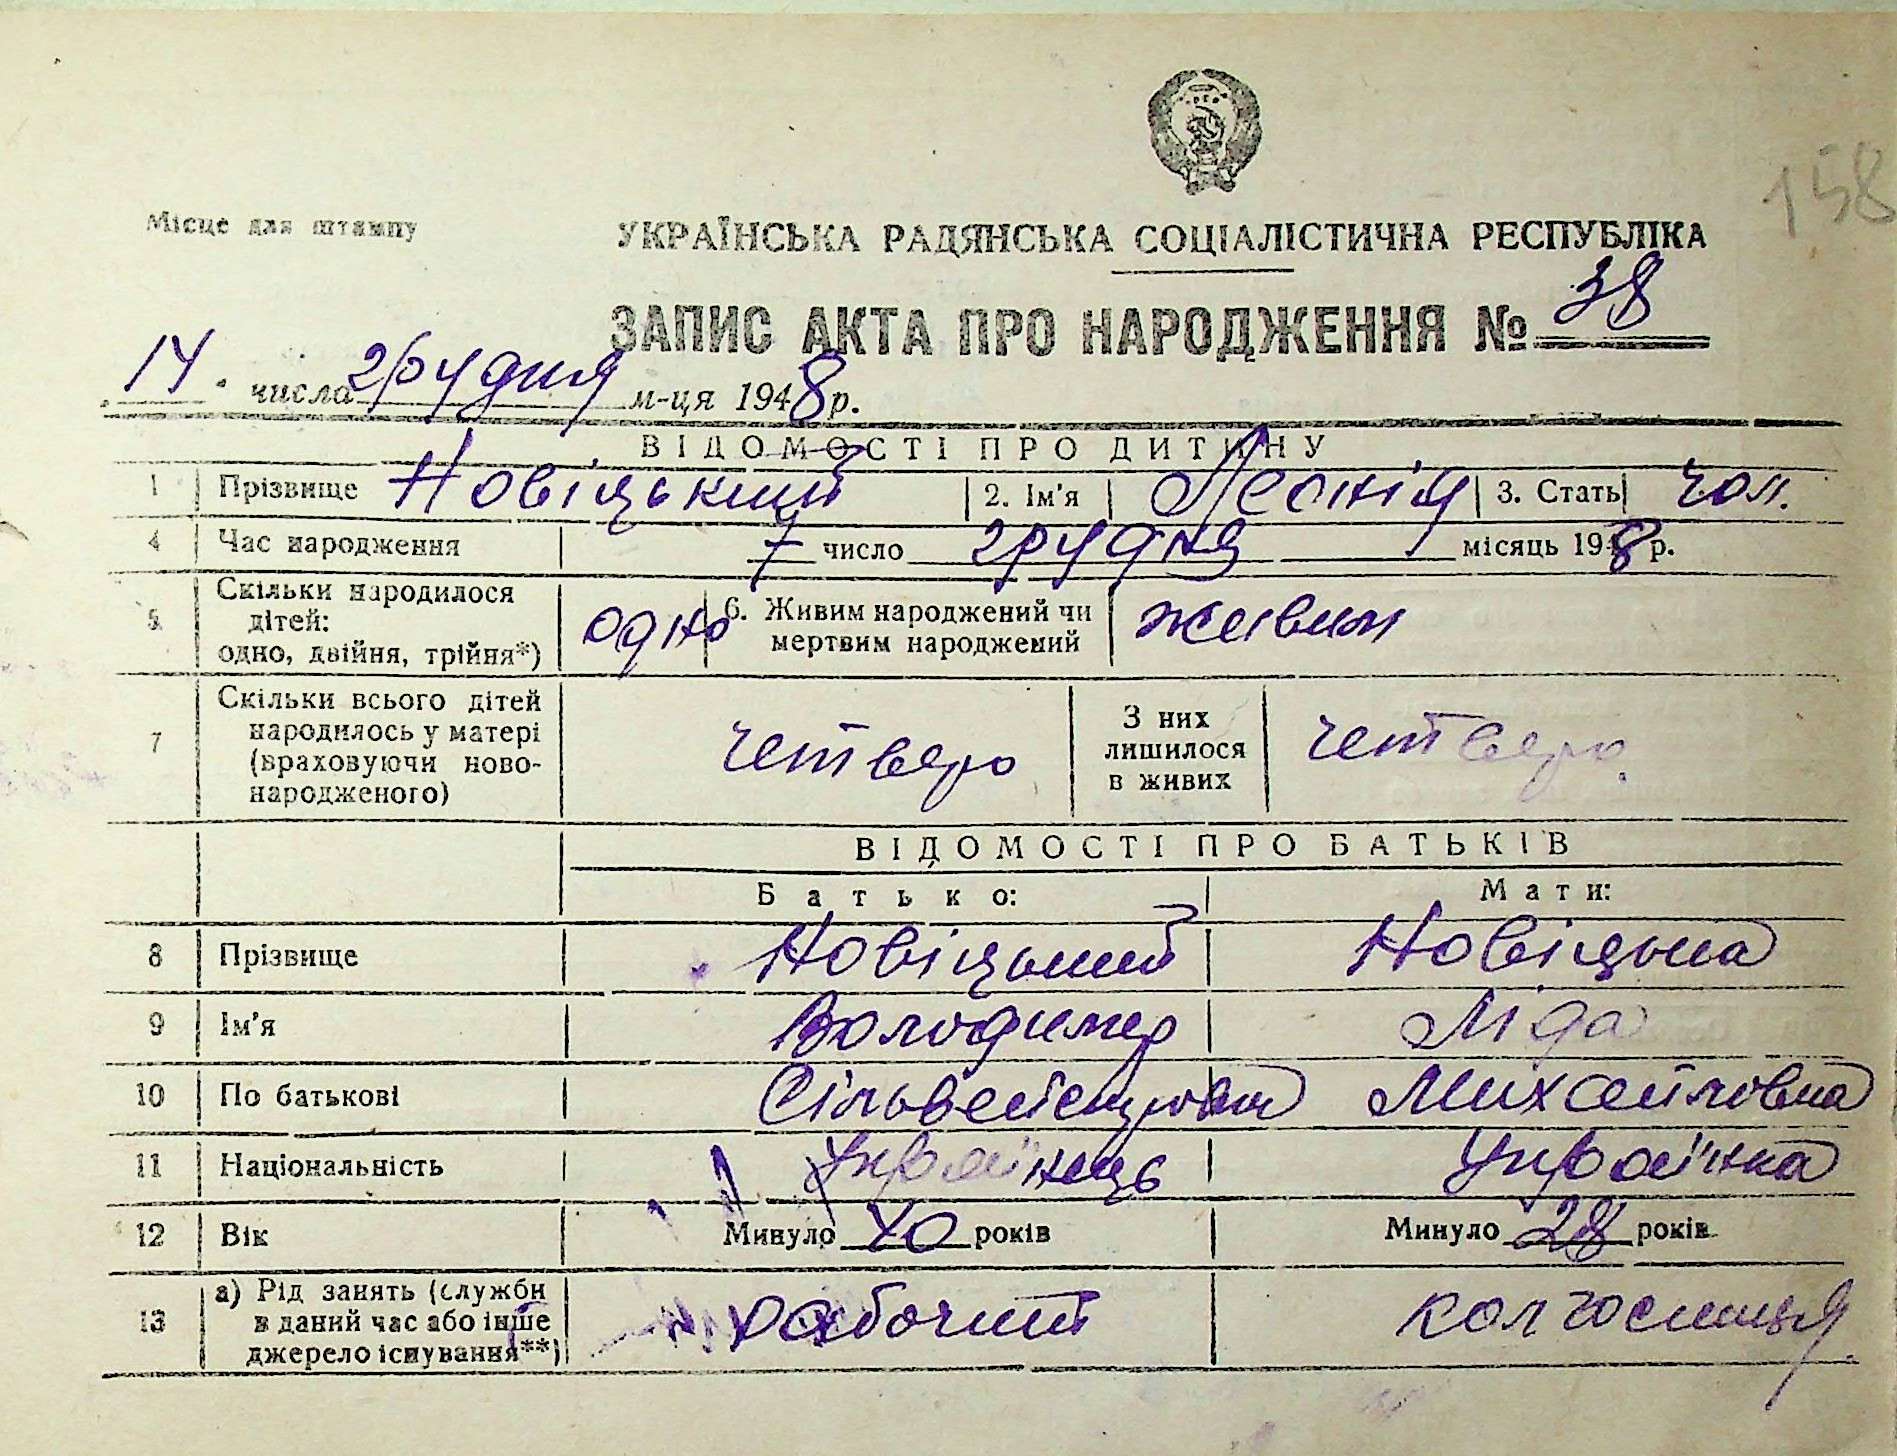 158
Місце для штампу
УКРАЇНСЬКА РАДЯНСЬКА СОЦІАЛІСТИЧНА РЕСПУБЛІКА
ЗАПИС АКТА ПРО НАРОДЖЕННЯ № 38
14 числа грудня м-ця 1948 р.
ВІДОМОСТІ ПРО ДИТИНУ
1 Прізвище Новіцький 2. Ім'я Леонід 3. Стать чол.
4 Час народження 7 число грудня місяць 1948 р.
5 Скільки народилося дітей: одно, двійня, трійня*) одно 6. Живим народжений чи мертвим народжений живим
7 Скільки всього дітей народилось у матері (враховуючи новонародженого) четверо З них лишилося в живих четверо
ВІДОМОСТІ ПРО БАТЬКІВ
Батько: Мати:
8 Прізвище Новіцький Новіцька
9 Ім'я Володимер Ліда
10 По батькові Михайловна
11 Національність Українець Українка
12 Вік Минуло 40 років Минуло 28 років
13 а) Рід занять (служби в даний час або інше джерело існування**) рабочий колгосниця